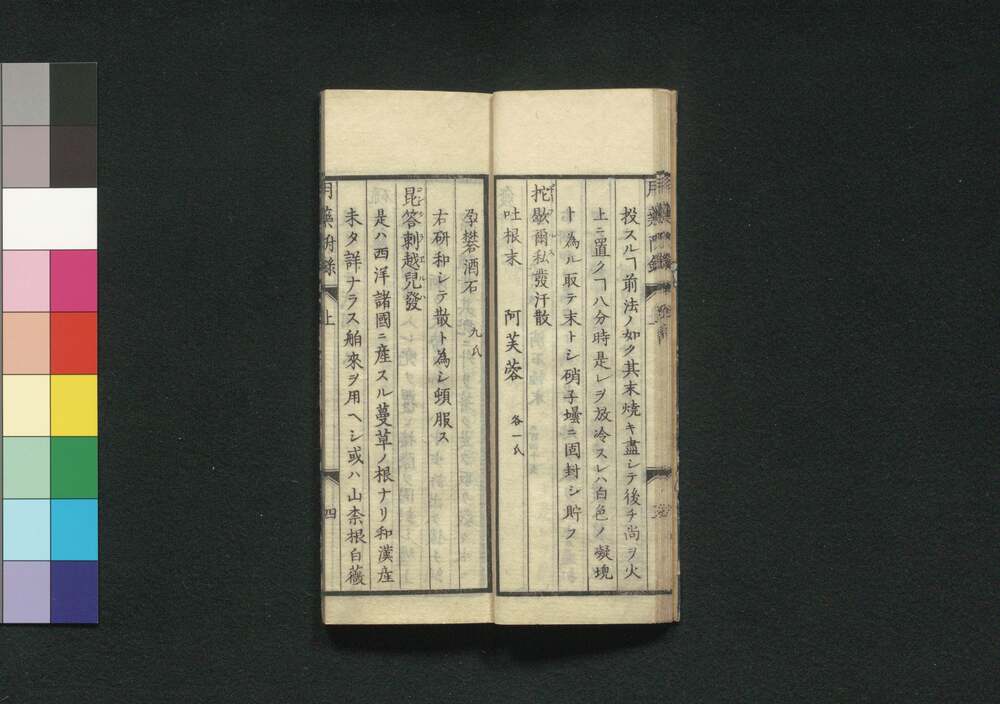 投スルヿ前法ノ如ク其末焼キ盡シテ後チ尚ヲ火
上ニ置クヿ八分時是レヲ放冷スレハ白色ノ凝塊
ト為ル取テ末トシ硝子壜ニ固封シ貯フ
抱歇爾私發汗散
吐根末 阿芙蓉 各一氏
孕礬酒石 九氏
右研和シテ散ト為シ頓服ス
昆答刺越兒發
是ハ西洋諸國ニ産スル蔓草ノ根ナリ和漢産
未タ詳ナラス舶來ヲ用ヘシ或ハ山柰根白薇
上 四